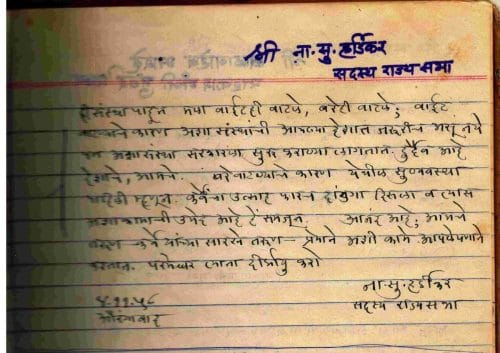 श्री ना. सु. हर्डिकर
सदस्य राज्य सभा
ही संस्था पाहून मला वाईटही वाटले, बरेही वाटले; वाईट
वाटण्याचे कारण अशा संस्थांची आपल्या देशात जरूरीच असूं नये
पण अशा संस्था सरकारला सुरू कराव्या लागतात. दुर्दैव आहे
देशाचे, आमचे. बरे वाटण्याचे कारण येथील सुव्यवस्था
म्हणून. कर्वेंचा उत्साह फारच दांडगा दिसला व त्यास
अशा कामाची उमेद आहे हें समजून. आनंद आहे, आमचे
तरूण कर्वे यांच्या सारखे तरूण प्रेमाने अशी कामे आपलेपणाने
करतात. परमेश्वर त्यांना दीर्घायु करो
ना. सु. हर्डिकर
सदस्य राज्य सभा
४.११.५८
औरंगाबाद